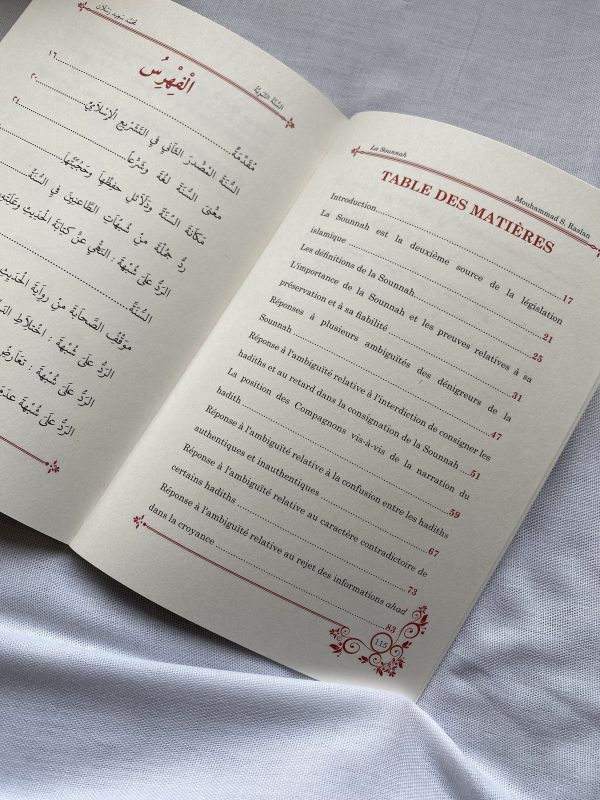 محمد سعيد رسلان
السنة النبوية
الْفِهْرِسُ
مُقَدِّمَةٌ..........١٦
السُّنَّةُ الْمَصْدَرُ الثَّانِي فِي التَّشْرِيعِ الْإِسْلَامِيِّ..........٢٠
مَعْنَى السُّنَّةِ لُغَةً وَشَرْعًا..........٢٤
مَكَانَةُ السُّنَّةِ وَدَلَائِلُ حِفْظِهَا وَحُجِّيَّتِهَا..........
رَدُّ جُمْلَةٍ مِنْ شُبُهَاتِ الطَّاعِنِينَ فِي السُّنَّةِ
الرَّدُّ عَلَى شُبْهَةِ : النَّهْيِ عَنْ كِتَابَةِ الْحَدِيثِ
السُّنَّةِ..........
مَوْقِفُ الصَّحَابَةِ مِنْ رِوَايَةِ الْحَدِيثِ
الرَّدُّ عَلَى شُبْهَةِ : اخْتِلَاطِ
الرَّدُّ عَلَى شُبْهَةِ : تَعَارُضِ
الرَّدُّ عَلَى شُبْهَةِ
La Sounnah
Mouhammad S. Raslan
TABLE DES MATIÈRES
Introduction..........17
La Sounnah est la deuxième source de la législation
islamique..........21
Les définitions de la Sounnah..........25
L'importance de la Sounnah et les preuves relatives à sa
préservation et à sa fiabilité..........31
Réponses à plusieurs ambiguïtés des dénigreurs de la
Sounnah..........47
Réponse à l'ambiguïté relative à l'interdiction de consigner les
hadiths et au retard dans la consignation de la Sounnah....51
La position des Compagnons vis-à-vis de la narration du
hadith..........59
Réponse à l'ambiguïté relative à la confusion entre les hadiths
authentiques et inauthentiques..........67
Réponse à l'ambiguïté relative au caractère contradictoire de
certains hadiths..........73
Réponse à l'ambiguïté relative au rejet des informations ahad
dans la croyance..........83
115